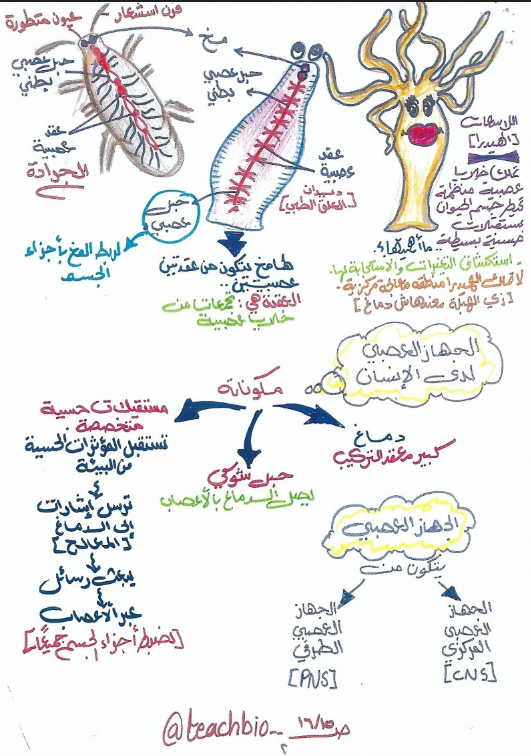 قرن استشعار
عيون متطورة
مخ
حبل عصبي
بطني
عقد
عصبية
الجرادة
حبل عصبي
بطني
عقد
عصبية
ديدان
[العلق الطبي]
حبل
عصبي
لربط المخ بأجزاء
الجسم
لها مخ يتكون من عقدتين
عصبيتين..
العقدة هي: مجموعات من
خلايا عصبية
اللاسعات
[الهيدرا]
خلايا
عصبية منظمة
جسم الحيوان
مستقبلات
حسية بسيطة.
ما أهميتها؟
استكشاف التغيرات والاستجابة لها.
لا تملك الهيدرا منطقة معالجة مركزية.
[زي الهبلة معندهاش دماغ]
الجهاز العصبي
لدى الإنسان
مكوناته
دماغ
كبير معقد التركيب
حبل شوكي
يصل الدماغ بالأعصاب
مستقبلات حسية
متخصصة
تستقبل المؤثرات الحسية
من البيئة
ترسل إشارات
إلى الدماغ
[المعالج]
يبعث رسائل
عبر الأعصاب
[لضبط أجزاء الجسم جميعًا]
الجهاز العصبي
يتكون من
الجهاز
العصبي
المركزي
[CNS]
الجهاز
العصبي
الطرفي
[PNS]
@teachbio_ ص ١٦/١٥
٢